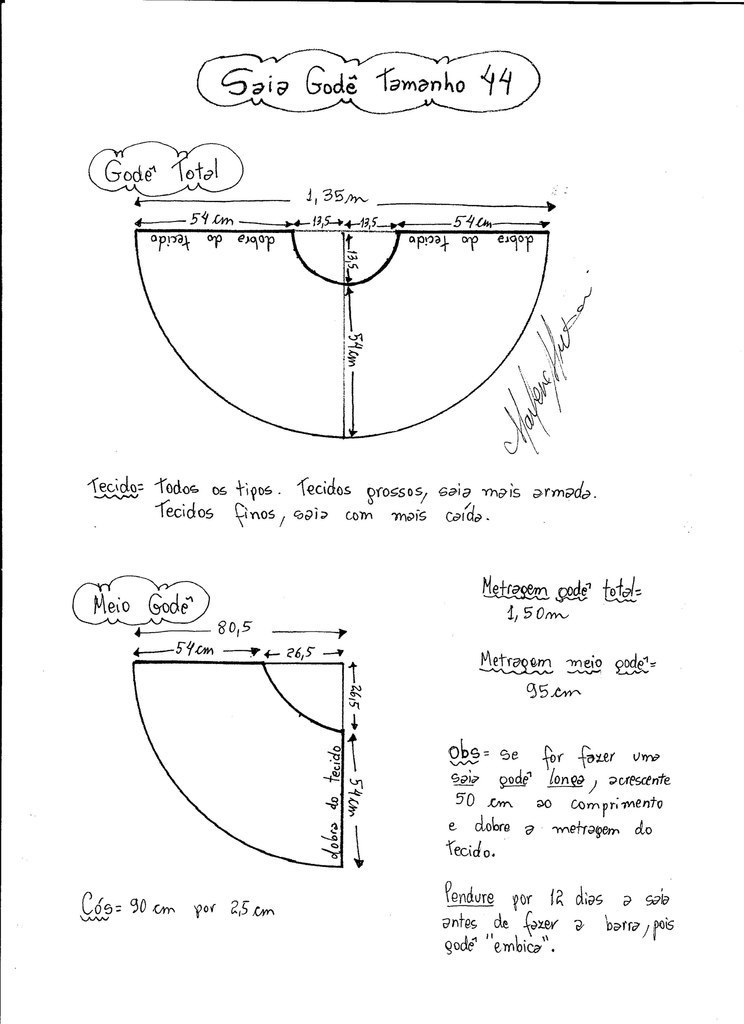 Saia Godê Tamanho 44
Godê Total
1,35m
54 cm 13,5 13,5 54 cm
dobra do tecido dobra do tecido
13,5
54cm
Tecido= Todos os tipos. Tecidos grossos, saia mais armada.
Tecidos finos, saia com mais caída.
Meio Godê
80,5
54 cm 26,5
26,5
dobra do tecido
54cm
Cós= 90 cm por 2,5 cm
Metragem godê total=
1,50m
Metragem meio godê=
95 cm
Obs= Se for fazer uma
saia godê longa, acrescente
50 cm ao comprimento
e dobre a metragem do
tecido.
Pendure por 12 dias a saia
antes de fazer a barra, pois
godê "embica".